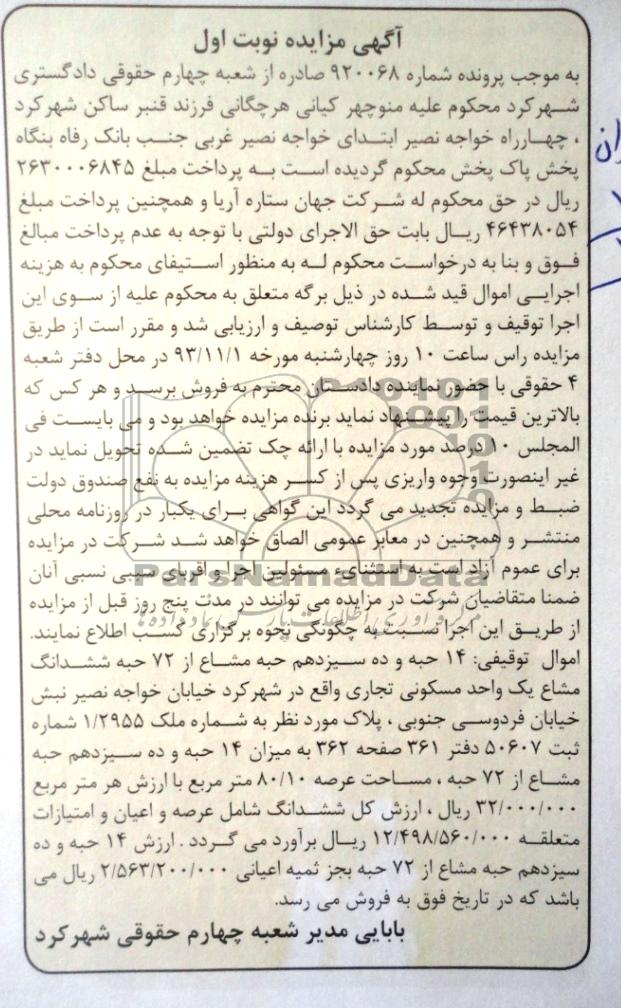 آگهی مزایده نوبت اول
به موجب پرونده شماره ۹۲۰۰۶۸ صادره از شعبه چهارم حقوقی دادگستری
شهرکرد محکوم علیه منوچهر کیانی هرچگانی فرزند قنبر ساکن شهرکرد
، چهارراه خواجه نصیر ابتدای خواجه نصیر غربی جنب بانک رفاه بنگاه
پخش پاک پخش محکوم گردیده است به پرداخت مبلغ ۲۶۳۰۰۰۶۸۴۵
ریال در حق محکوم له شرکت جهان ستاره آریا و همچنین پرداخت مبلغ
۴۶۴۳۸۰۵۴ ریال بابت حق الاجرای دولتی با توجه به عدم پرداخت مبالغ
فوق و بنا به درخواست محکوم له به منظور استیفای محکوم به هزینه
اجرایی اموال قید شده در ذیل برگه متعلق به محکوم علیه از سوی این
اجرا توقیف و توسط کارشناس توصیف و ارزیابی شد و مقرر است از طریق
مزایده راس ساعت ۱۰ روز چهارشنبه مورخه ۹۳/۱۱/۱ در محل دفتر شعبه
۴ حقوقی با حضور نماینده دادستان محترم به فروش برسد و هر کس که
بالاترین قیمت را پیشنهاد نماید برنده مزایده خواهد بود و می بایست فی
المجلس ۱۰ درصد مورد مزایده با ارائه چک تضمین شده تحویل نماید در
غیر اینصورت وجوه واریزی پس از کسر هزینه مزایده به نفع صندوق دولت
ضبط و مزایده تجدید می گردد این گواهی برای یکبار در روزنامه محلی
منتشر و همچنین در معابر عمومی الصاق خواهد شد شرکت در مزایده
برای عموم آزاد است به استثنای مسئولین اجرا و اقربای سببی نسبی آنان
ضمنا متقاضیان شرکت در مزایده می توانند در مدت پنج روز قبل از مزایده
از طریق این اجرا نسبت به چگونگی نحوه برگزاری کسب اطلاع نمایند.
اموال توقیفی: ۱۴ حبه و ده سیزدهم حبه مشاع از ۷۲ حبه ششدانگ
مشاع یک واحد مسکونی تجاری واقع در شهرکرد خیابان خواجه نصیر نبش
خیابان فردوسی جنوبی ، پلاک مورد نظر به شماره ملک ۱/۲۹۵۵ شماره
ثبت ۵۰۶۰۷ دفتر ۳۶۱ صفحه ۳۶۲ به میزان ۱۴ حبه و ده سیزدهم حبه
مشاع از ۷۲ حبه ، مساحت عرصه ۸۰/۱۰ متر مربع با ارزش هر متر مربع
۳۲/۰۰۰/۰۰۰ ریال ، ارزش کل ششدانگ شامل عرصه و اعیان و امتیازات
متعلقه ۱۲/۴۹۸/۵۶۰/۰۰۰ ریال برآورد می گردد . ارزش ۱۴ حبه و ده
سیزدهم حبه مشاع از ۷۲ حبه بجز ثمیه اعیانی ۲/۵۶۳/۲۰۰/۰۰۰ ریال می
باشد که در تاریخ فوق به فروش می رسد.
بابایی مدیر شعبه چهارم حقوقی شهرکرد
ParsNamadData